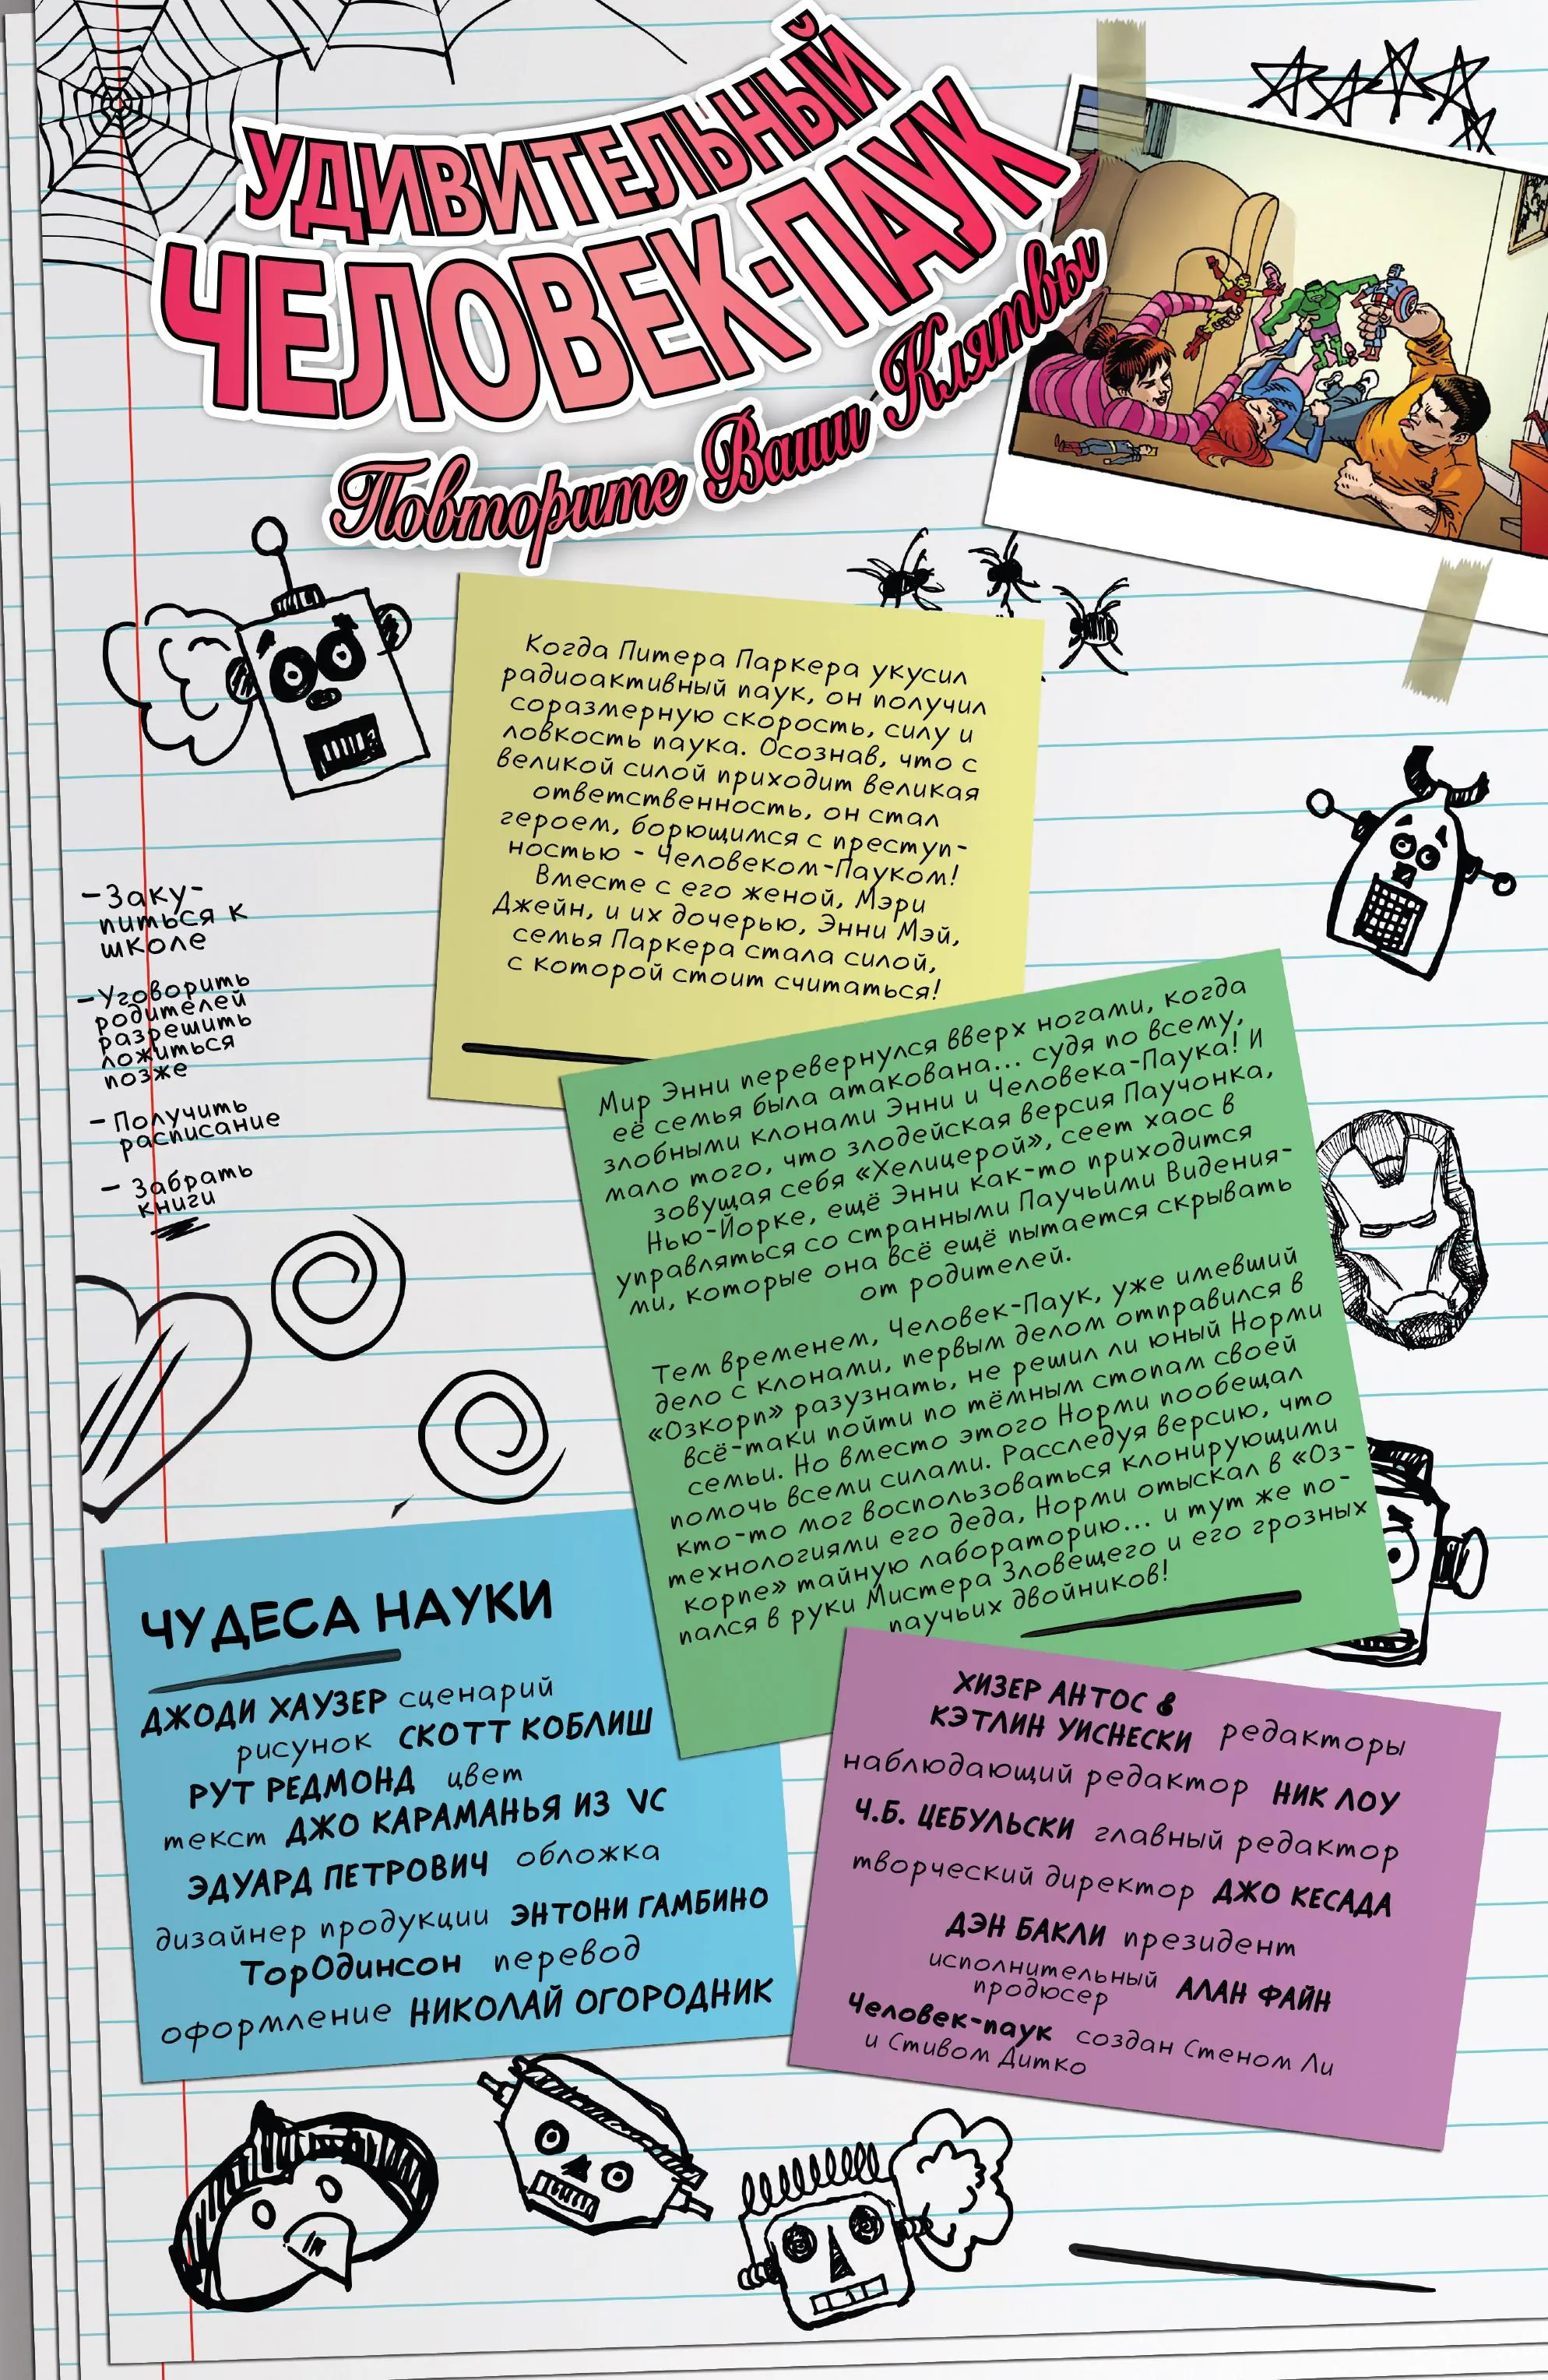 УДИВИТЕЛЬНЫЙ
ЧЕЛОВЕК-ПАУК
Повторите Ваши Клятвы
Когда Питера Паркера укусил
радиоактивный паук, он получил
соразмерную скорость, силу и
ловкость паука. Осознав, что с
великой силой приходит великая
ответственность, он стал
героем, борющимся с преступ-
ностью - Человеком-Пауком!
Вместе с его женой, Мэри
Джейн, и их дочерью, Энни Мэй,
семья Паркера стала силой,
с которой стоит считаться!
-Заку-
питься к
школе
-Уговорить
родителей
разрешить
ложиться
позже
- Получить
расписание
- Забрать
книги
Мир Энни перевернулся вверх ногами, когда
её семья была атакована... судя по всему,
злобными клонами Энни и Человека-Паука! И
мало того, что злодейская версия Паучонка,
зовущая себя «Хелицерой», сеет хаос в
Нью-Йорке, ещё Энни как-то приходится
управляться со странными Паучьими Видения-
ми, которые она всё ещё пытается скрывать
от родителей.
Тем временем, Человек-Паук, уже имевший
дело с клонами, первым делом отправился в
«Озкорп» разузнать, не решил ли юный Норми
всё-таки пойти по тёмным стопам своей
семьи. Но вместо этого Норми пообещал
помочь всеми силами. Расследуя версию, что
кто-то мог воспользоваться клонирующими
технологиями его деда, Норми отыскал в «Оз-
корпе» тайную лабораторию... и тут же по-
пался в руки Мистера Зловещего и его грозных
паучьих двойников!
ЧУДЕСА НАУКИ
ДЖОДИ ХАУЗЕР сценарий
рисунок СКОТТ КОБЛИШ
РУТ РЕДМОНД цвет
текст ДЖО КАРАМАНЬЯ ИЗ VC
ЭДУАРД ПЕТРОВИЧ обложка
дизайнер продукции ЭНТОНИ ГАМБИНО
ТорОдинсон перевод
оформление НИКОЛАЙ ОГОРОДНИК
ХИЗЕР АНТОС &
КЭТЛИН УИСНЕСКИ редакторы
наблюдающий редактор НИК ЛОУ
Ч.Б. ЦЕБУЛЬСКИ главный редактор
творческий директор ДЖО КЕСАДА
ДЭН БАКЛИ президент
исполнительный
продюсер АЛАН ФАЙН
Человек-паук создан Стеном Ли
и Стивом Дитко